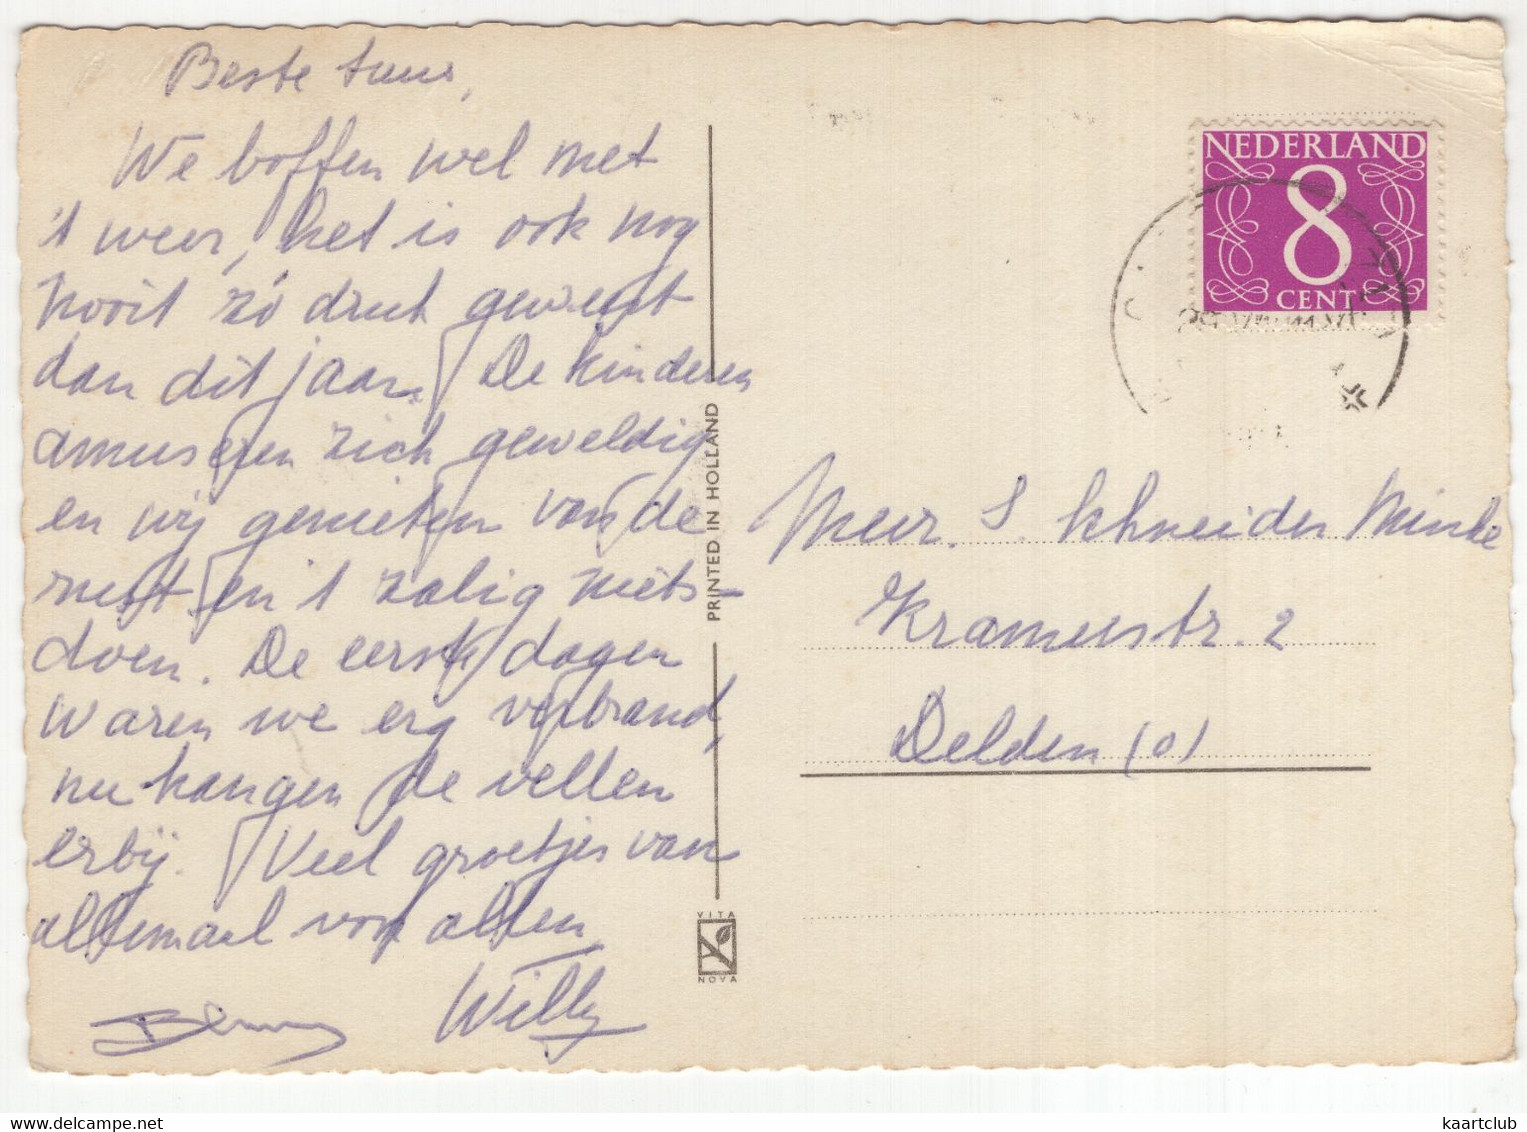 Beste tuur,
We boffen wel met
't weer, het is ook nog
nooit zó druk geweest
dan dit jaar. De kinderen
amuseren zich geweldig
en wij genieten van de
rust en 't zalig niets-
doen. De eerste dagen
waren we erg verbrand,
nu hangen de vellen
erbij. Veel groetjes van
allemaal von allen
Willy
Benny
PRINTED IN HOLLAND
VITA
NOVA
NEDERLAND
8
CENT
Mevr. S. Schneider Minke
Kramerstr. 2
Delden (O)
kaartclub